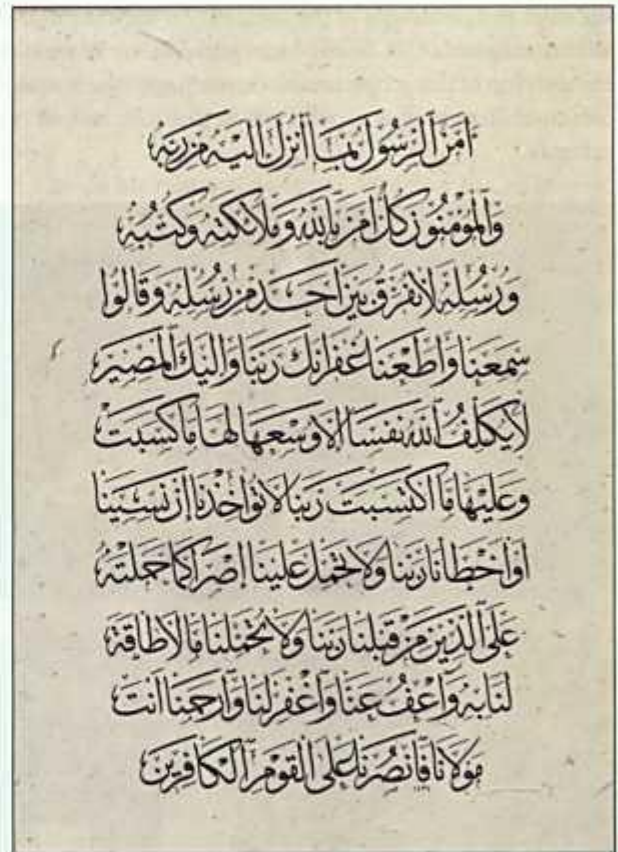 آمن الرسول بما أنزل إليه من ربه
والمؤمنون كل آمن بالله وملائكته وكتبه
ورسله لا نفرق بين أحد من رسله وقالوا
سمعنا وأطعنا غفرانك ربنا وإليك المصير
لا يكلف الله نفسا إلا وسعها لها ما كسبت
وعليها ما اكتسبت ربنا لا تؤاخذنا إن نسينا
أو أخطأنا ربنا ولا تحمل علينا إصرا كما حملته
على الذين من قبلنا ربنا ولا تحملنا ما لا طاقة
لنا به واعف عنا واغفر لنا وارحمنا أنت
مولانا فانصرنا على القوم الكافرين